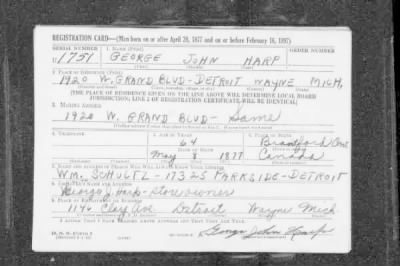 REGISTRATION CARD—(Men born on or after April 28, 1877 and on or before February 16, 1897)
SERIAL NUMBER 1. NAME (Print) ORDER NUMBER
U 1751 GEORGE JOHN HARP
2. PLACE OF RESIDENCE (Print)
1920 W. GRAND BLVD - DETROIT WAYNE MICH.
[THE PLACE OF RESIDENCE GIVEN ON THE LINE ABOVE WILL DETERMINE LOCAL BOARD
JURISDICTION; LINE 2 OF REGISTRATION CERTIFICATE WILL BE IDENTICAL]
3. MAILING ADDRESS
1920 W. GRAND BLVD - Same
4. TELEPHONE 5. AGE IN YEARS 6. PLACE OF BIRTH
64 Brantford Ont
DATE OF BIRTH
May 8 1877 Canada
7. NAME AND ADDRESS OF PERSON WHO WILL ALWAYS KNOW YOUR ADDRESS
WM. SCHULTZ - 17325 PARKSIDE - DETROIT
8. EMPLOYER'S NAME AND ADDRESS
George J. Harp - Store owner
9. PLACE OF EMPLOYMENT OR BUSINESS
1146 Clay Ave Detroit Wayne Mich.
I AFFIRM THAT I HAVE VERIFIED ABOVE ANSWERS AND THAT THEY ARE TRUE.
D. S. S. Form 1
George John Harp